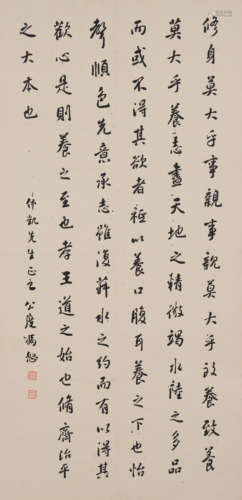 修身莫大乎事親事親莫大乎致養致養
莫大乎養志盡天地之精微竭水陸之多品
而或不得其歡者祗以養口腹耳養之下也怡
聲順色先意承志雖復菽水之約而有以得其
歡心是則養之至也孝王道之始也脩齊治平
之大本也
仲凱先生正之 公度馮恕